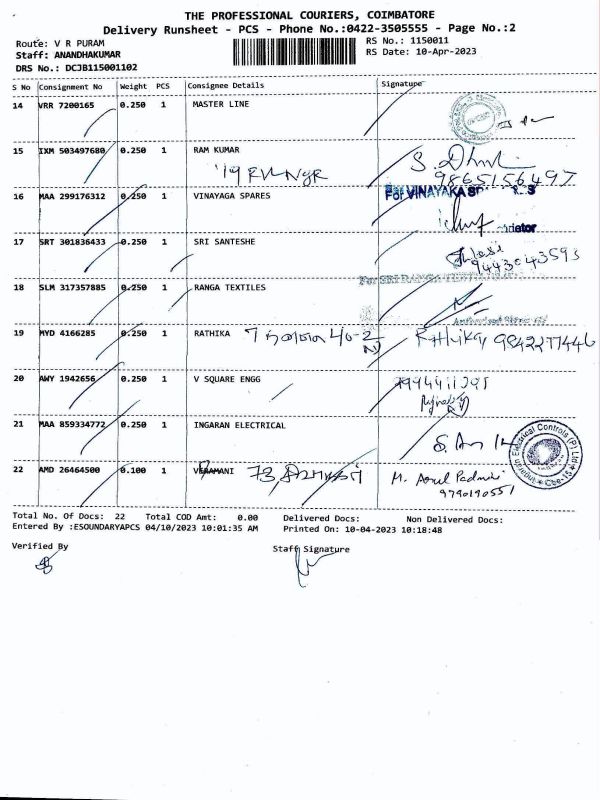 THE PROFESSIONAL COURIERS, COIMBATORE
Delivery Runsheet - PCS - Phone No.:0422-3505555 - Page No.:2
Route: V R PURAM
RS No.: 1150011
Staff: ANANDHAKUMAR
RS Date: 10-Apr-2023
DRS No.: DCJB115001102
S No Consignment No Weight PCS Consignee Details Signature
14 VRR 7200165 0.250 1 MASTER LINE
15 IXM 503497680 0.250 1 RAM KUMAR
9865156497
16 MAA 299176312 0.250 1 VINAYAGA SPARES
For VINAYAKA
17 SRT 301836433 0.250 1 SRI SANTESHE
9443043593
For SRI RANGA TEXTILES
18 SLM 317357885 0.250 1 RANGA TEXTILES
19 MYD 4166285 0.250 1 RATHIKA
Rathika 9842277446
20 AWY 1942656 0.250 1 V SQUARE ENGG
21 MAA 859334772 0.250 1 INGARAN ELECTRICAL
Electrical Controls (P) Ltd
Cbe-15
22 AMD 26464500 0.100 1
M. Arul Padmini
9790190551
Total No. Of Docs: 22 Total COD Amt: 0.00 Delivered Docs: Non Delivered Docs:
Entered By :ESOUNDARYAPCS 04/10/2023 10:01:35 AM Printed On: 10-04-2023 10:18:48
Verified By
Staff Signature